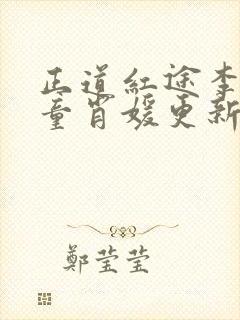 正道红途李
童肖媛更新
鄭莹莹